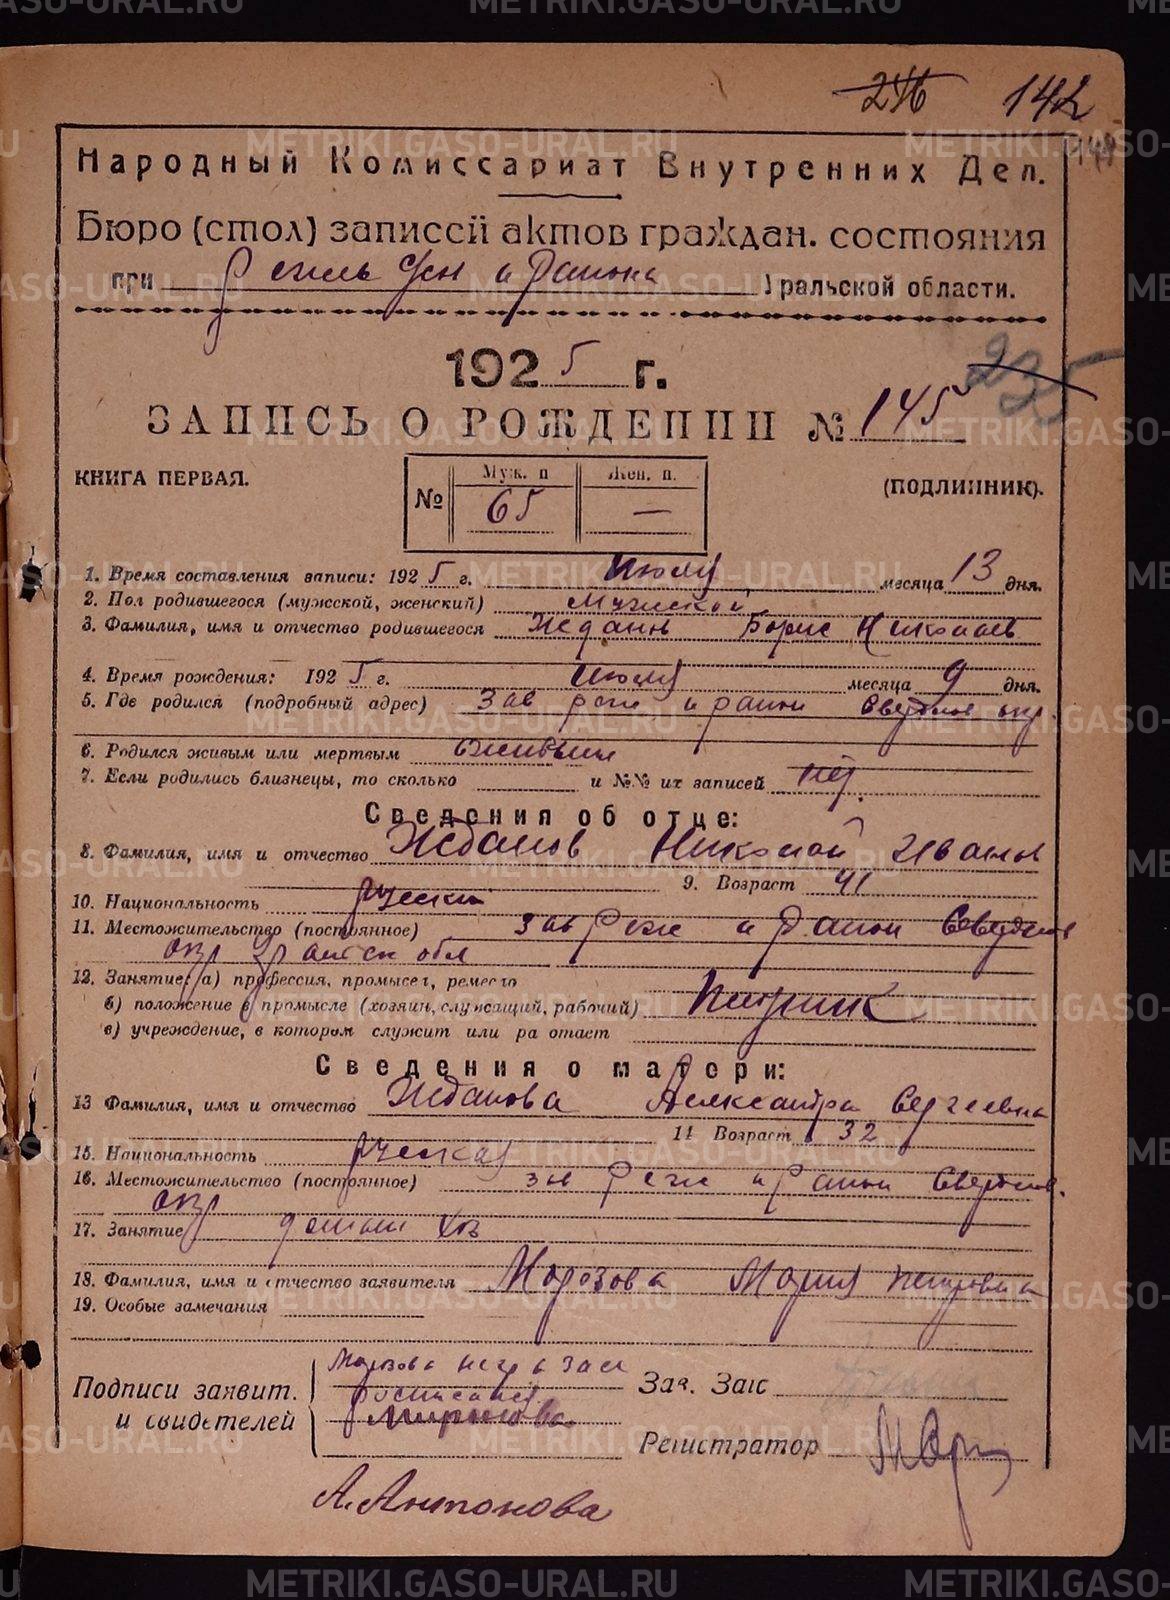 246 142
144
Народный Комиссариат Внутренних Дел.
Бюро (стол) записей актов граждан. состояния
при района Уральской области.
1925 г.
235
ЗАПИСЬ О РОЖДЕНИИ № 145
КНИГА ПЕРВАЯ.
№ Муж. п. 65 Жен. п. —
(ПОДЛИННИК).
1. Время составления записи: 1925 г. Июля месяца 13 дня.
2. Пол родившегося (мужской, женский) Мужской
3. Фамилия, имя и отчество родившегося Жданов Борис Николаев
4. Время рождения: 1925 г. Июля месяца 9 дня.
5. Где родился (подробный адрес) Зав Реж и район Свердлов окр.
6. Родился живым или мертвым живым
7. Если родились близнецы, то сколько и №№ их записей нет
Сведения об отце:
8. Фамилия, имя и отчество Жданов Николай Иванов
9. Возраст 41
10. Национальность русский
11. Местожительство (постоянное) зав Реж и район Свердлов
окр Уральск обл
12. Занятие: а) профессия, промысел, ремесло
б) положение в промысле (хозяин, служащий, рабочий)
в) учреждение, в котором служит или работает
Сведения о матери:
13 Фамилия, имя и отчество Жданова Александра Сергеевна
14 Возраст 32
15. Национальность русская
16. Местожительство (постоянное) зав Реж и район Свердлов.
окр
17. Занятие домаш хоз
18. Фамилия, имя и отчество заявителя Морозова Мария Петровна
19. Особые замечания
Подписи заявит.
и свидетелей
Морозова негр а за ее
А. Антонова
Зав. Загс
Регистратор
METRIKI.GASO-URAL.RU